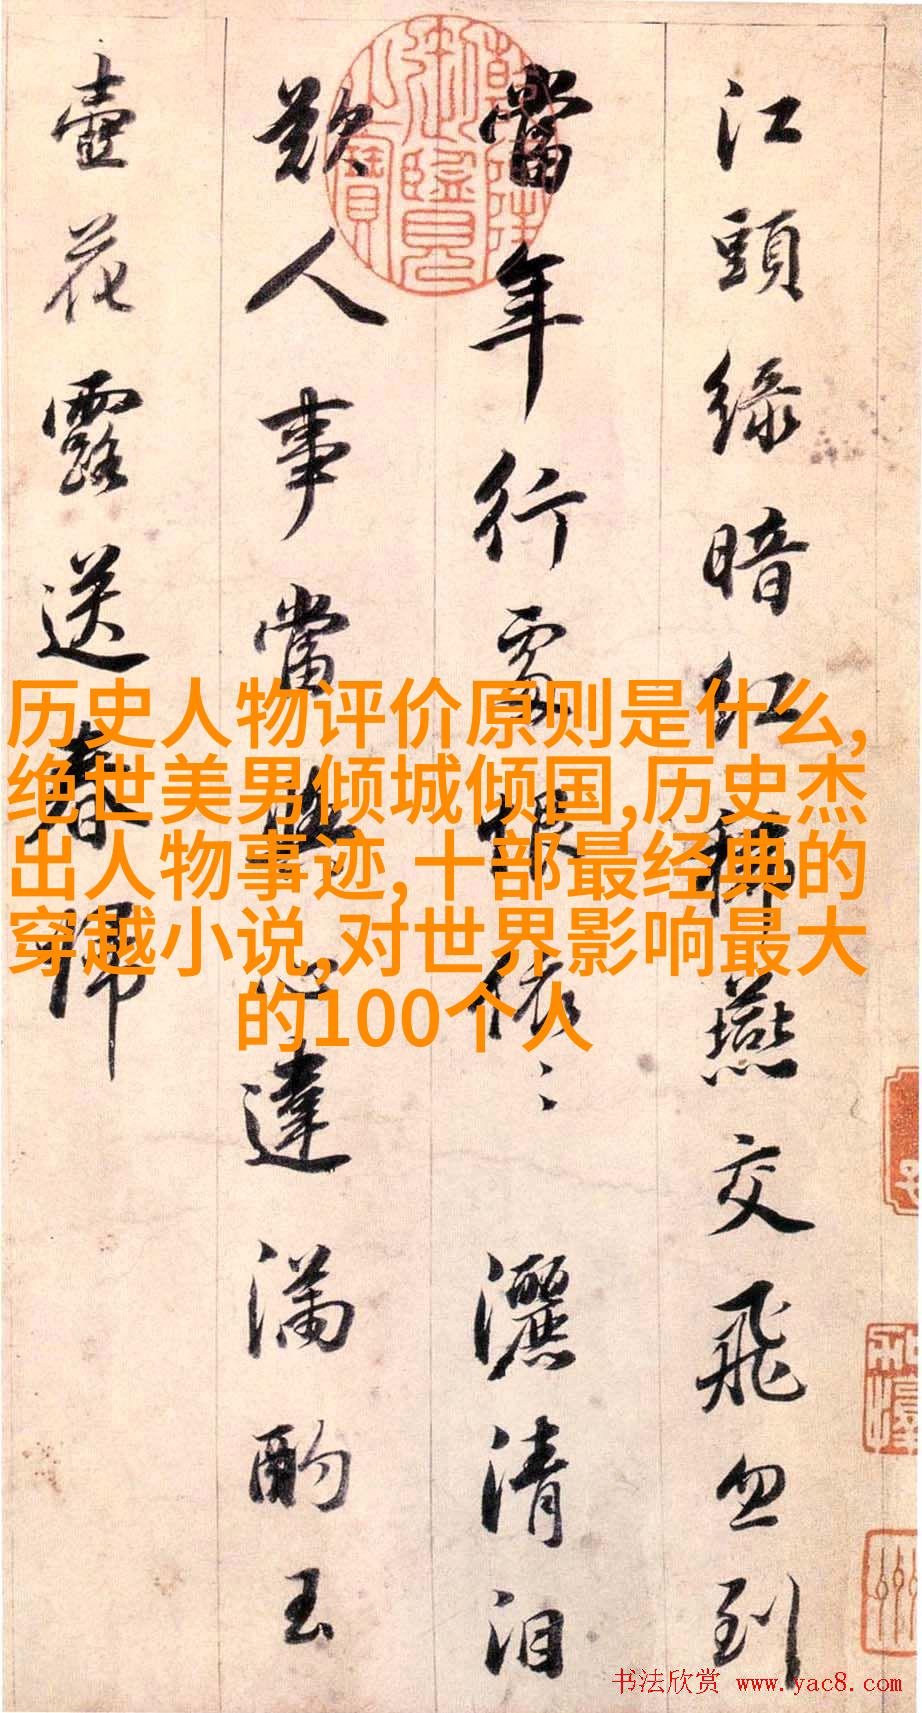 江頭綠暗紅稀燕交飛忽到
當年行處恨依〻灑清泪
歎人事當與心違滿酌玉
壺花露送春歸
乾隆御覽之寶
历史人物评价原则是什么,
绝世美男倾城倾国,历史杰
出人物事迹,十部最经典的
穿越小说,对世界影响最大
的100个人
书法欣赏 www.yac8.com